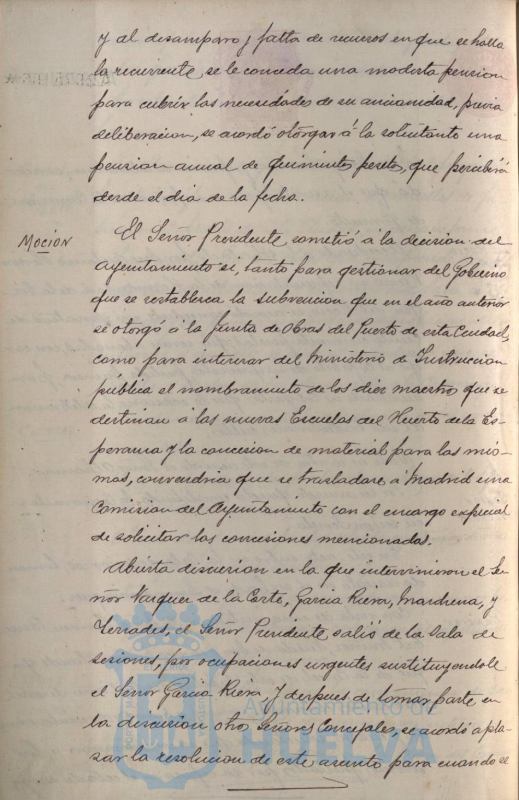 y al desamparo y falta de recursos en que se halla
la recurrente, se le conceda una modesta pension
para cubrir las necesidades de su ancianidad, previa
deliberacion, se acordó otorgar á la solicitante una
pension anual de quinientas pesetas, que percibirá
desde el dia de la fecha.
Mocion
El Señor Presidente sometió á la decision del
Ayuntamiento si, tanto para gestionar del Gobierno
que se restablezca la subvencion que en el año anterior
se otorgó á la Junta de Obras del Puerto de esta Ciudad,
como para interesar del Ministerio de Instruccion
pública el nombramiento de los diez maestros que se
destinan á las nuevas Escuelas del Huerto de la Es-
peranza y la concesion de material para las mis-
mas, convendria que se trasladase á Madrid una
Comision del Ayuntamiento con el encargo especial
de solicitar las concesiones mencionadas.
Abierta discusion en la que intervinieron el Se-
ñor Vazquez de la Corte, Garcia Riera, Marchena, y
Terrades, el Señor Presidente salió de la Sala de
sesiones, por ocupaciones urgentes sustituyendole
el Señor Garcia Riera, y despues de tomar parte en
la discusion otros Señores Concejales, se acordó apla-
zar la resolucion de este asunto para cuando el
Ayuntamiento de
HUELVA